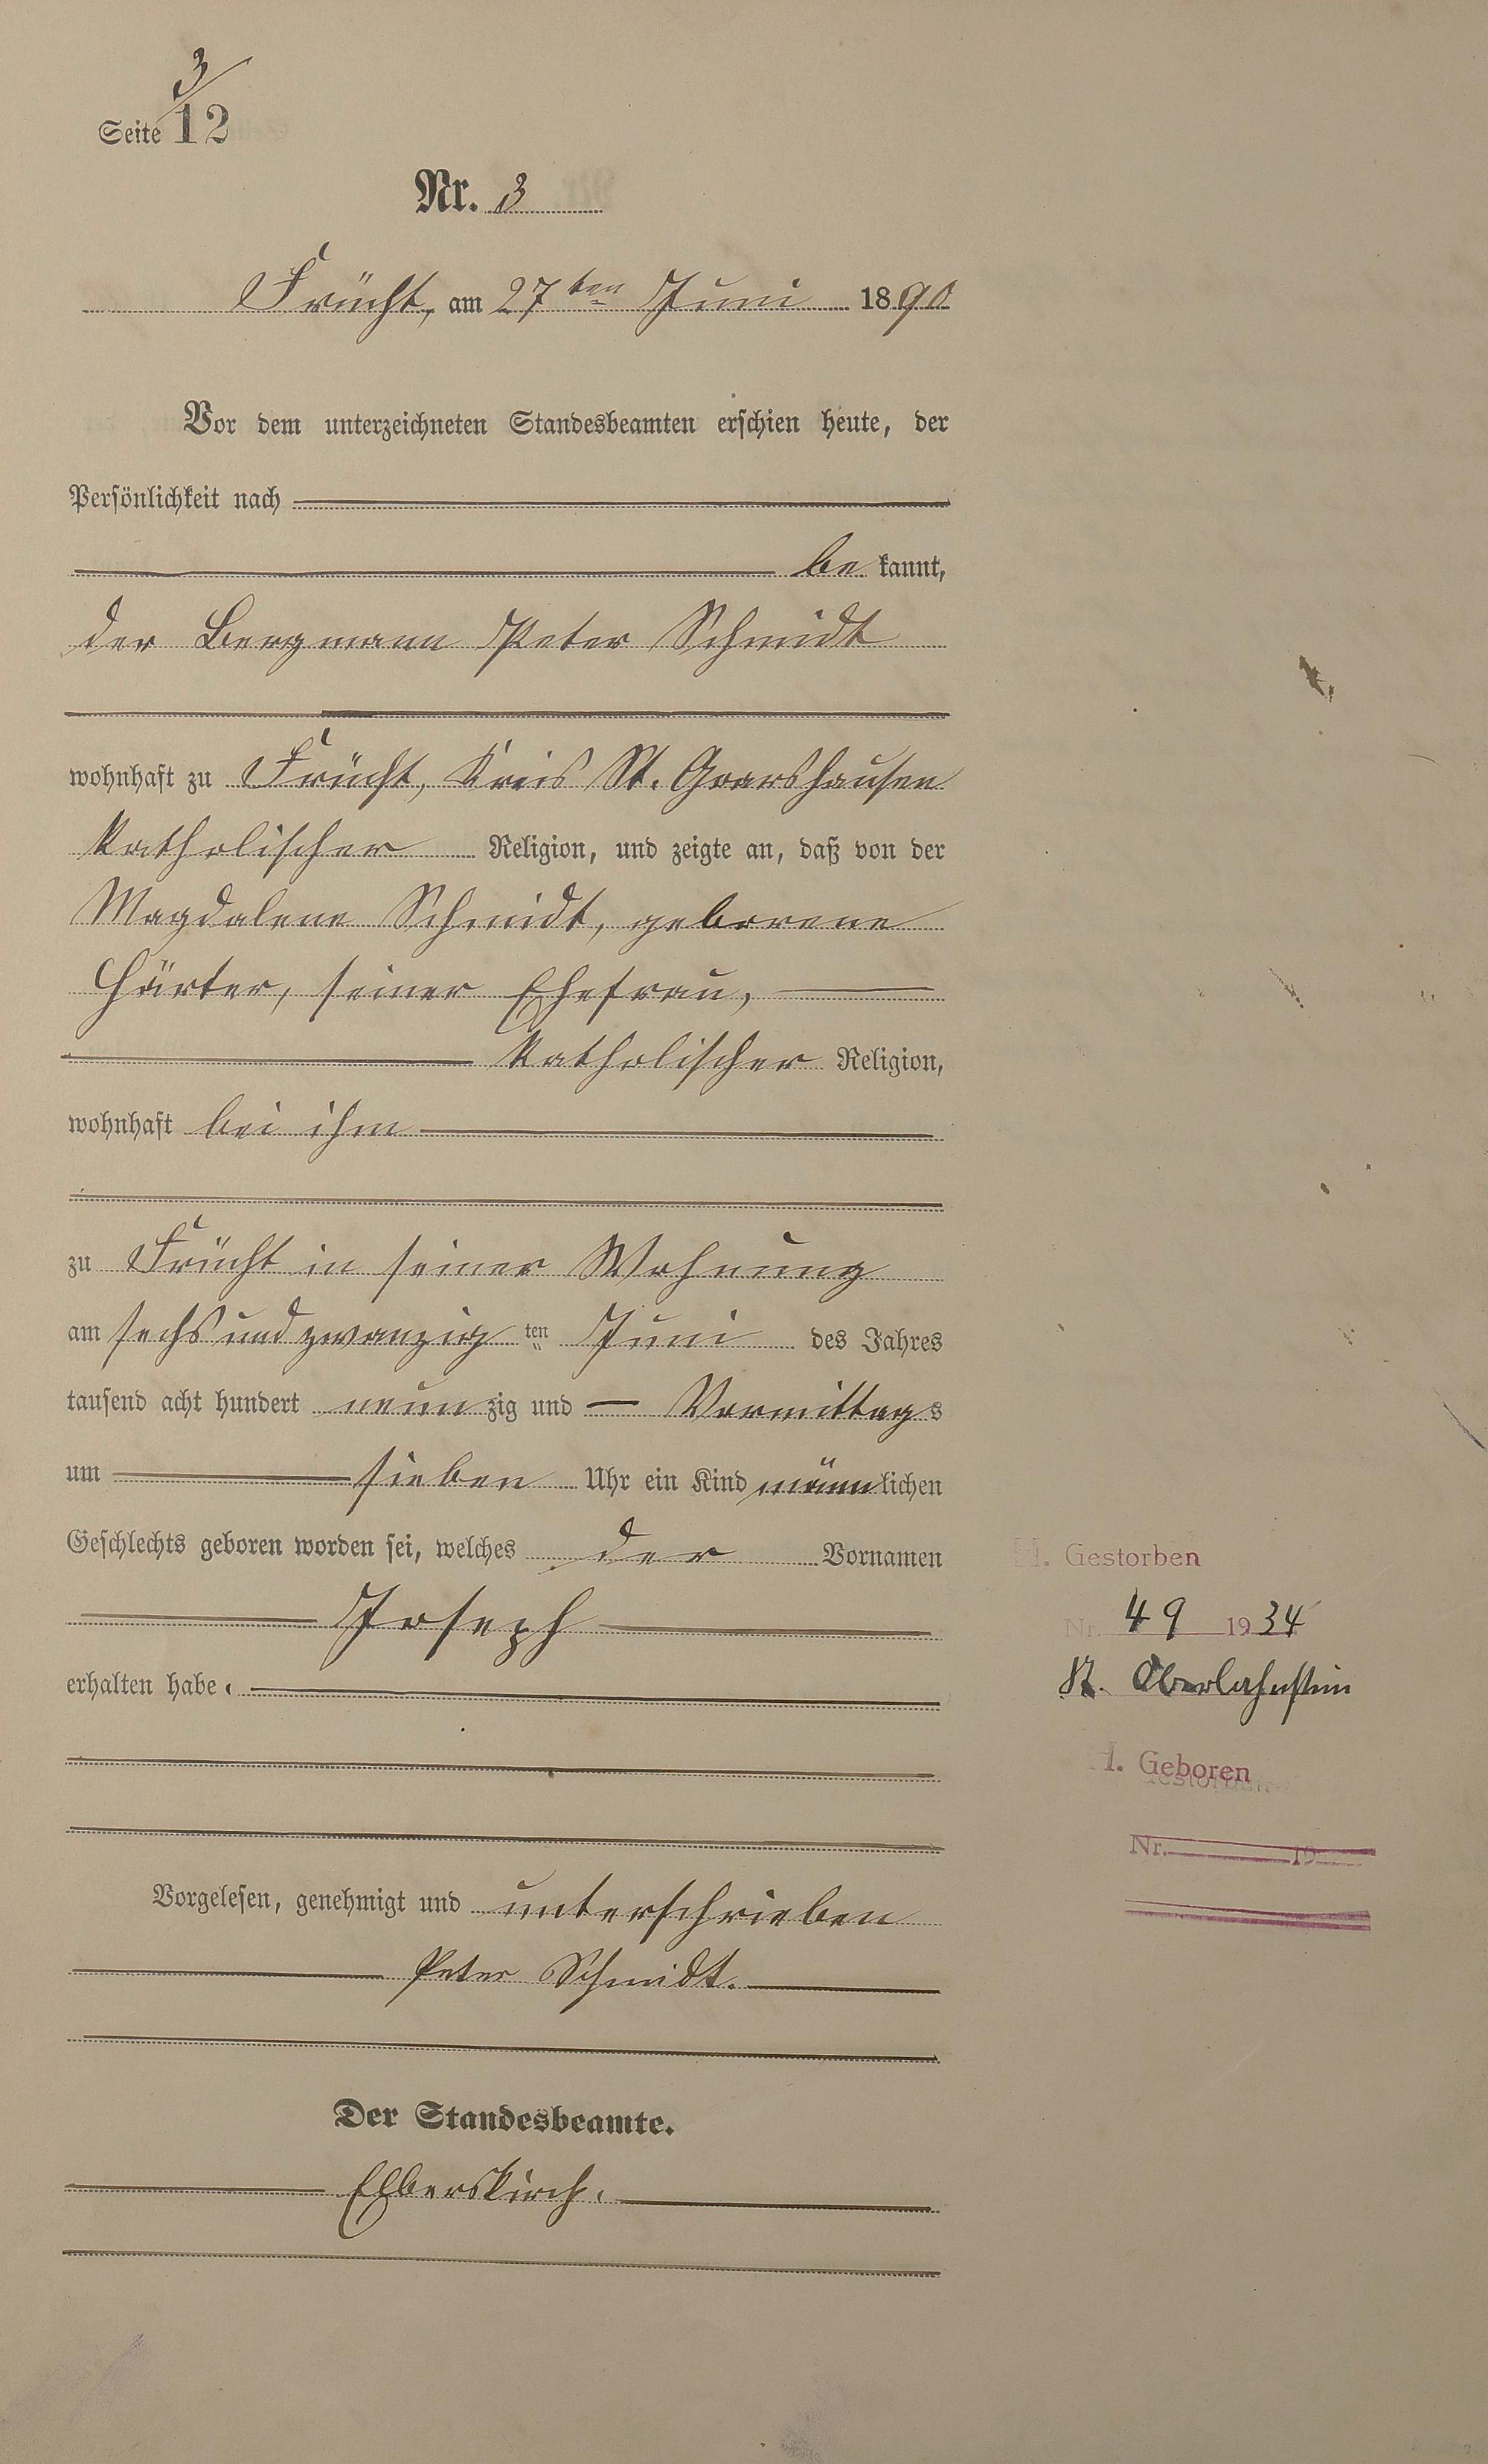 3/
Seite 12
Nr. 3
Frücht, am 27ten Juni 1890
Vor dem unterzeichneten Standesbeamten erschien heute, der
Persönlichkeit nach
be kannt,
der Bergmann Peter Schmidt
wohnhaft zu Frücht, Kreis St. Goarshausen
katholischer Religion, und zeigte an, daß von der
Magdalena Schmidt, geborene
Härter, seiner Ehefrau,
katholischer Religion,
wohnhaft bei ihm
zu Frücht in seiner Wohnung
am sechs und zwanzig ten Juni des Jahres
tausend acht hundert neun zig und — Vormittags
um sieben Uhr ein Kind männlichen
Geschlechts geboren worden sei, welches den Vornamen
Joseph
erhalten habe.
Vorgelesen, genehmigt und unterschrieben
Peter Schmidt.
Der Standesbeamte.
Elberskirch.
H. Gestorben
Nr. 49 1934
St. Oberlahnstein
H. Geboren
Nr. 19